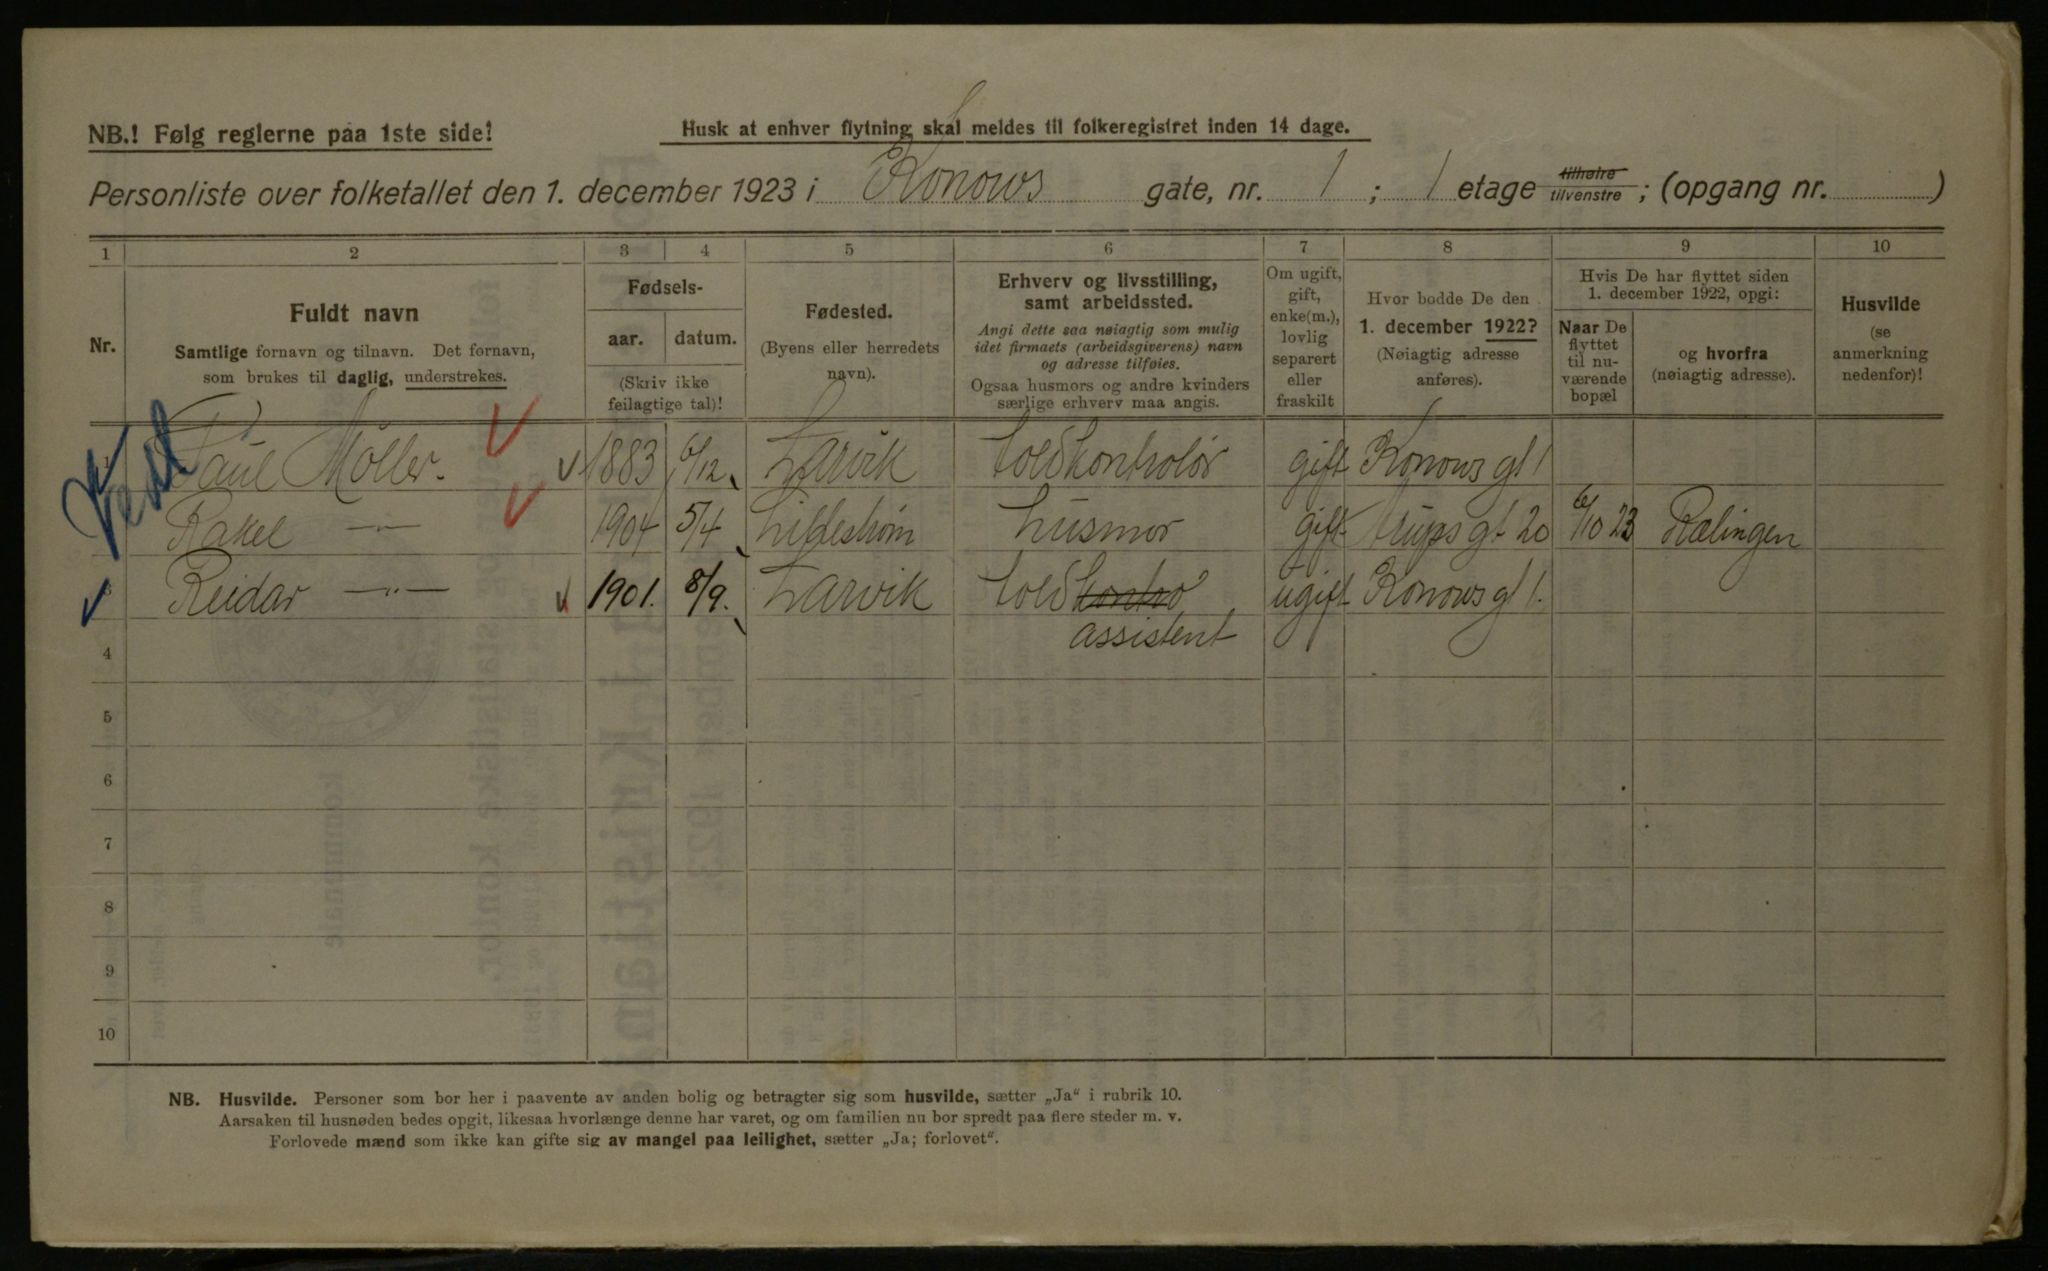 NB.! Følg reglerne paa 1ste side!
Husk at enhver flytning skal meldes til folkeregistret inden 14 dage.
Personliste over folketallet den 1. december 1923 i Konows gate, nr. 1; 1 etage tilhøire tilvenstre; (opgang nr. )
1 2 3 4 5 6 7 8 9 10
Nr.
Fuldt navn
Samtlige fornavn og tilnavn. Det fornavn,
som brukes til daglig, understrekes.
Fødsels-
aar. datum.
(Skriv ikke
feilagtige tal)!
Fødested.
(Byens eller herredets
navn).
Erhverv og livsstilling,
samt arbeidssted.
Angi dette saa nøiagtig som mulig
idet firmaets (arbeidsgiverens) navn
og adresse tilføies.
Ogsaa husmors og andre kvinders
særlige erhverv maa angis.
Om ugift,
gift,
enke(m.),
lovlig
separert
eller
fraskilt
Hvor bodde De den
1. december 1922?
(Nøiagtig adresse
anføres).
Hvis De har flyttet siden
1. december 1922, opgi:
Naar De
flyttet
til nu-
værende
bopæl
og hvorfra
(nøiagtig adresse).
Husvilde
(se
anmerkning
nedenfor)!
Paul Møller. 1883 6/12 Larvik toldkontrolør gift Konows gt 1
Rakel —"— 1904 5/4 Lillestrøm husmor gift gt 20 6/10 23 Rælingen
3 Reidar —"— 1901. 8/9. Larvik toldkontro ugift Konows gt 1.
assistent
4
5
6
7
8
9
10
NB. Husvilde. Personer som bor her i paavente av anden bolig og betragter sig som husvilde, sætter „Ja“ i rubrik 10.
Aarsaken til husnøden bedes opgit, likesaa hvorlænge denne har varet, og om familien nu bor spredt paa flere steder m. v.
Forlovede mænd som ikke kan gifte sig av mangel paa leilighet, sætter „Ja; forlovet“.